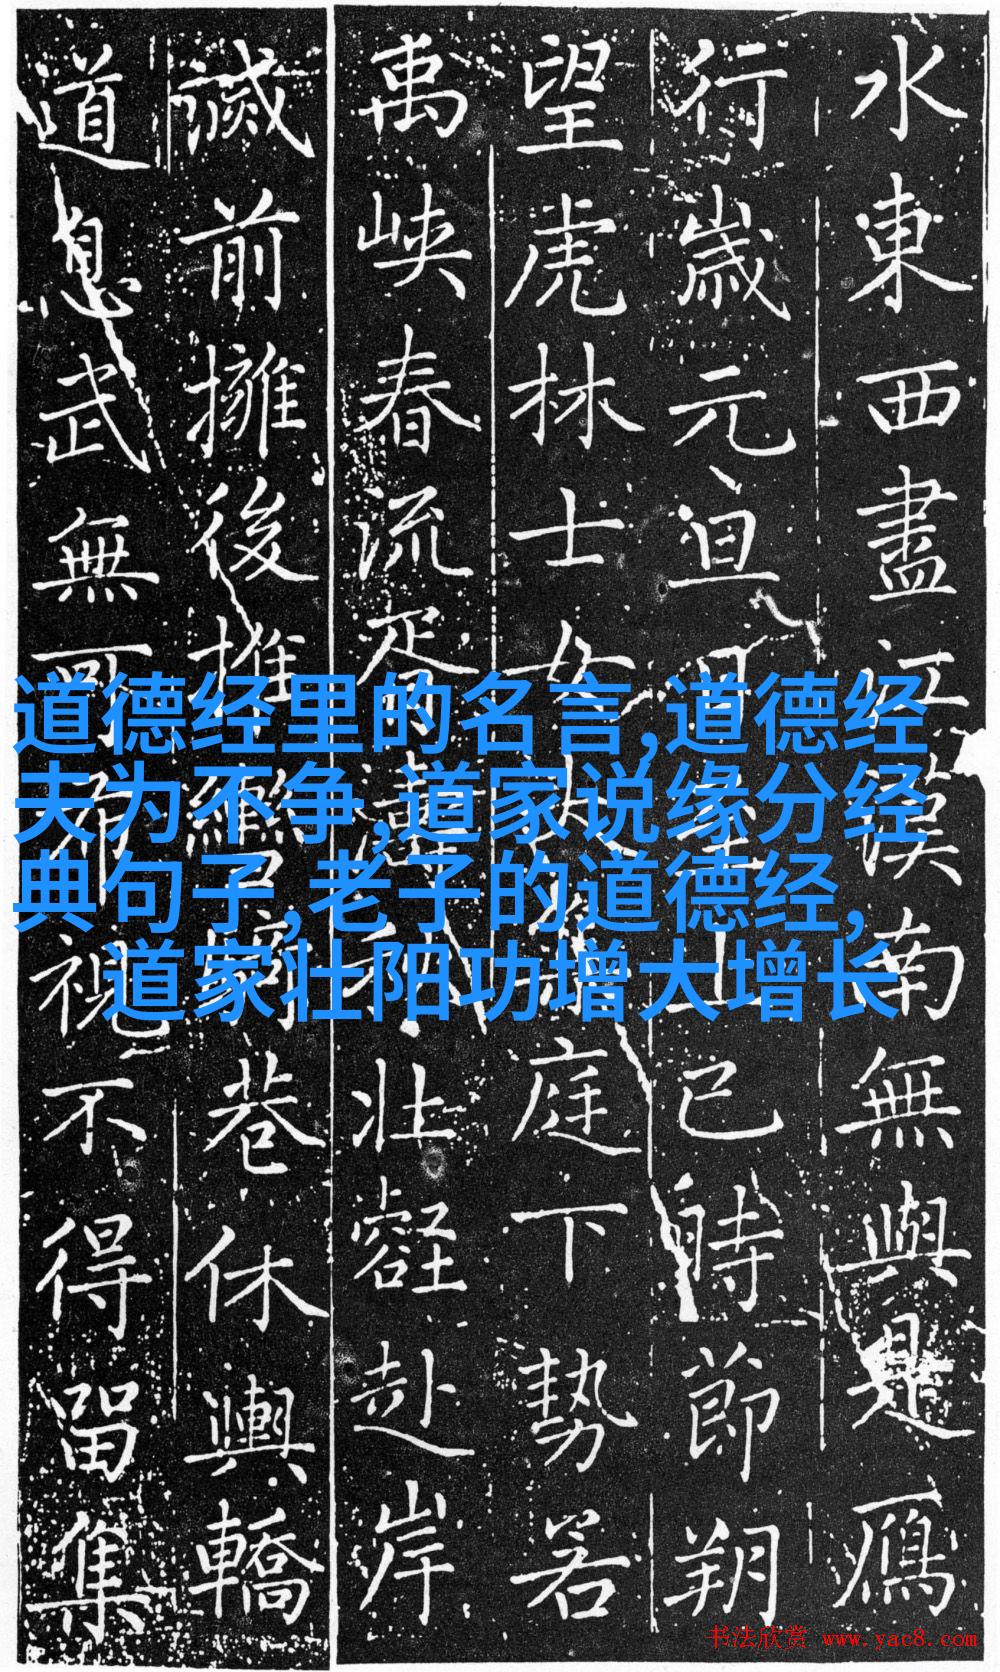 水東西盡江漢南無與是鴈
行歲元旦已時節朔
望虎林士女庭下勢若
禹峽春流壯壑赴岸
前擁後推巷休輿轎
道息武無視不得留集
道德经里的名言,道德经
夫为不争,道家说缘分经
典句子,老子的道德经,
道家壮阳功增大增长
书法欣赏 www.yac8.com